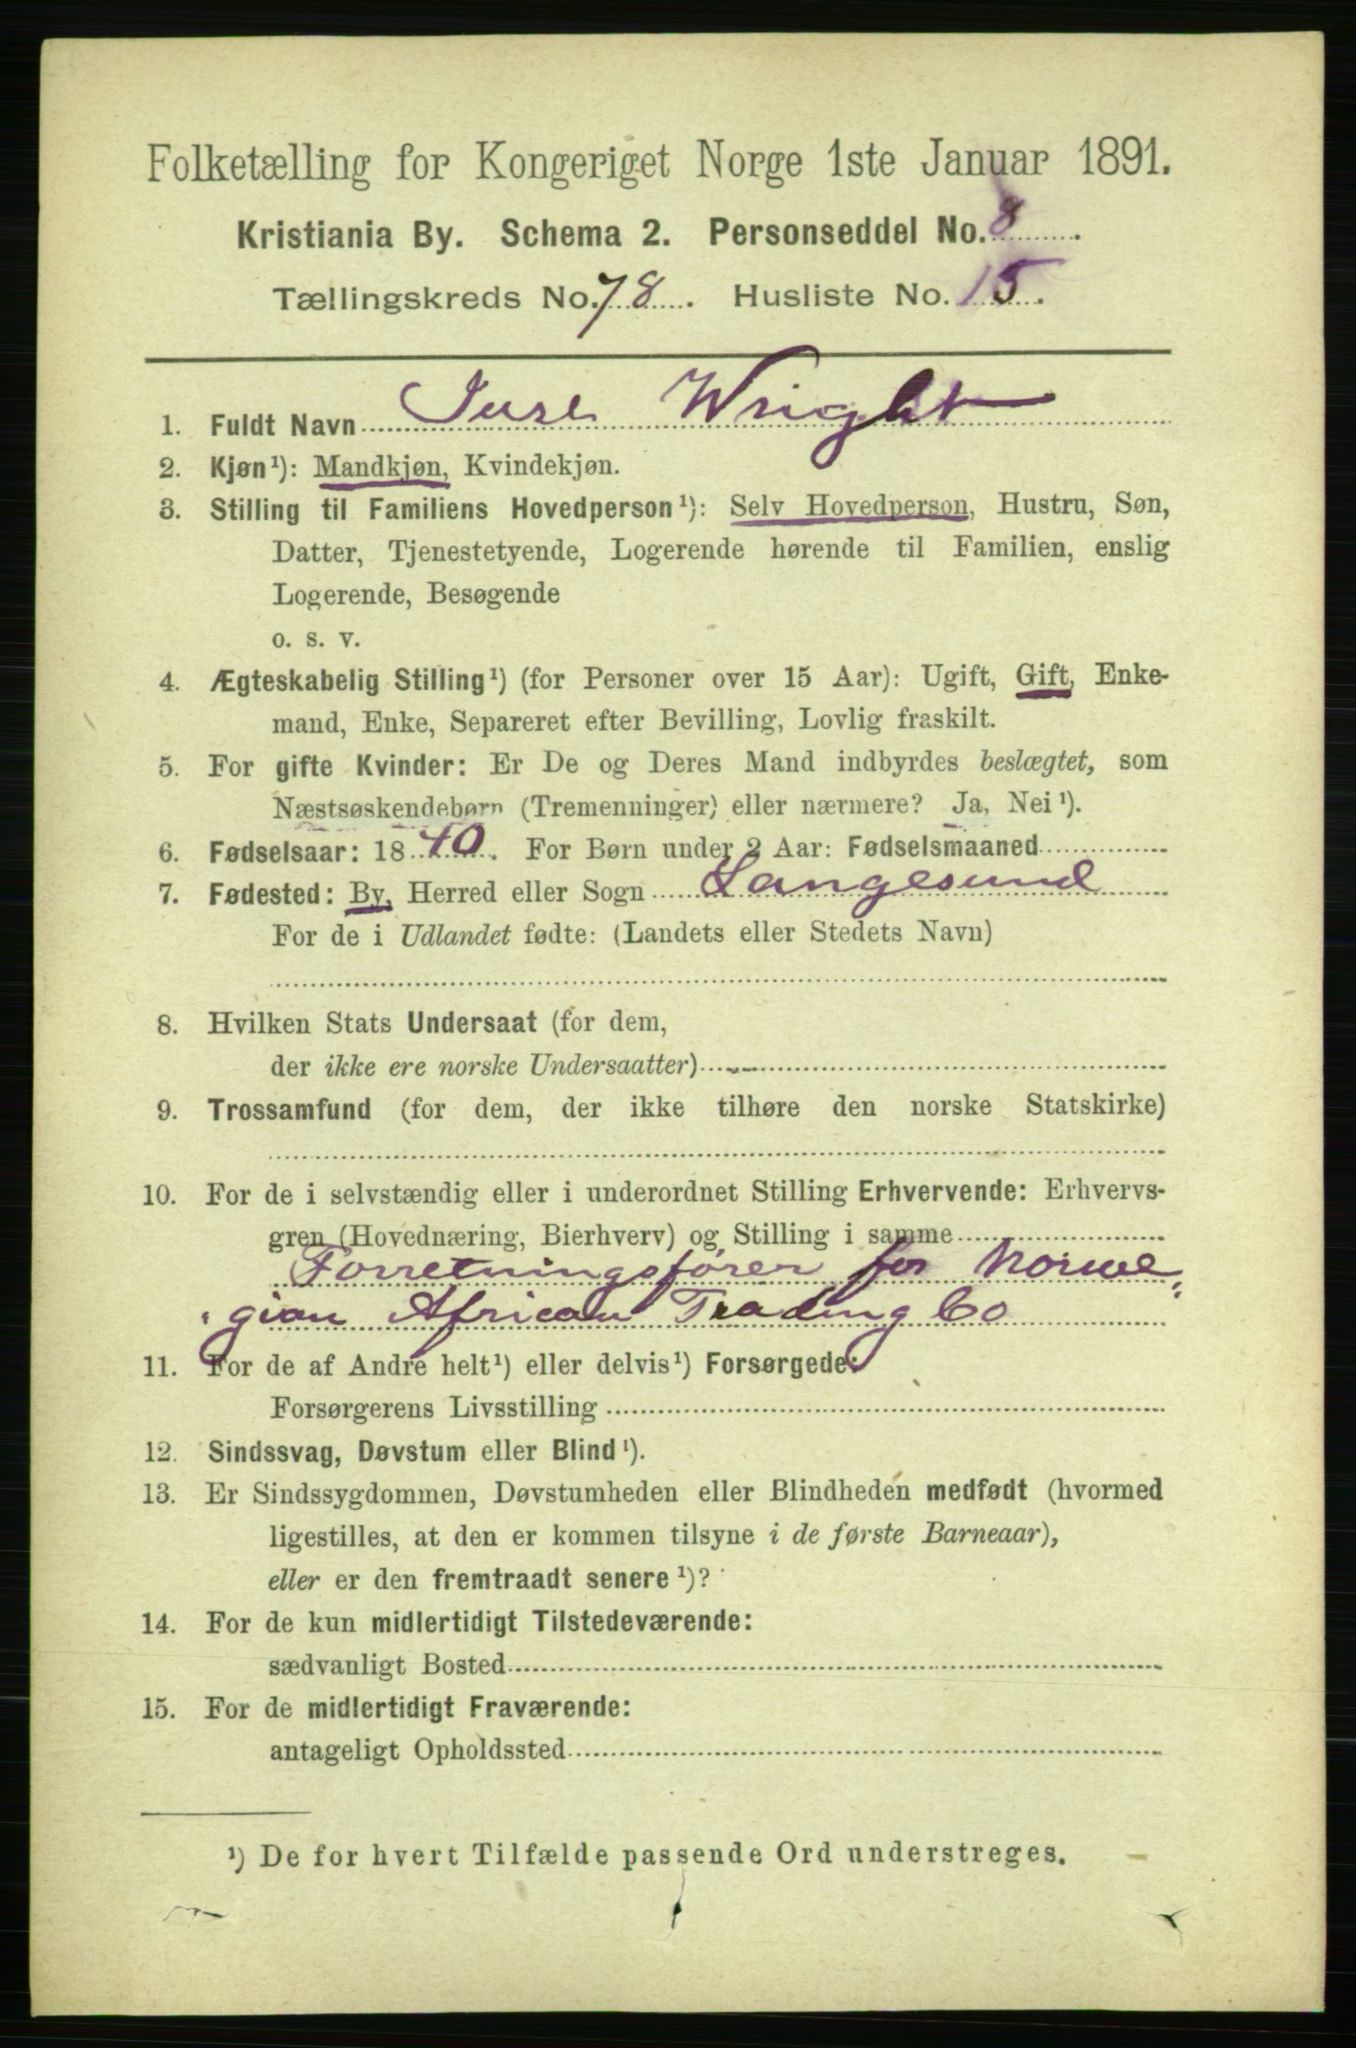 Folketælling for Kongeriget Norge 1ste Januar 1891.
Kristiania By. Schema 2. Personseddel No. 8.
Tællingskreds No. 78. Husliste No. 15.
1. Fuldt Navn Wright
2. Kjøn¹): Mandkjøn, Kvindekjøn.
3. Stilling til Familiens Hovedperson¹): Selv Hovedperson, Hustru, Søn,
Datter, Tjenestetyende, Logerende hørende til Familien, enslig
Logerende, Besøgende
o. s. v.
4. Ægteskabelig Stilling¹) (for Personer over 15 Aar): Ugift, Gift, Enke-
mand, Enke, Separeret efter Bevilling, Lovlig fraskilt.
5. For gifte Kvinder: Er De og Deres Mand indbyrdes beslægtet, som
Næstsøskendebørn (Tremenninger) eller nærmere? Ja, Nei¹).
6. Fødselsaar: 1840. For Børn under 2 Aar: Fødselsmaaned
7. Fødested: By, Herred eller Sogn Langesund
For de i Udlandet fødte: (Landets eller Stedets Navn)
8. Hvilken Stats Undersaat (for dem,
der ikke ere norske Undersaatter)
9. Trossamfund (for dem, der ikke tilhøre den norske Statskirke)
10. For de i selvstændig eller i underordnet Stilling Erhvervende: Erhvervs-
gren (Hovednæring, Bierhverv) og Stilling i samme
Forretningsfører for Norwe-
gian African Trading Co
11. For de af Andre helt¹) eller delvis¹) Forsørgede:
Forsørgerens Livsstilling
12. Sindssvag, Døvstum eller Blind¹).
13. Er Sindssygdommen, Døvstumheden eller Blindheden medfødt (hvormed
ligestilles, at den er kommen tilsyne i de første Barneaar),
eller er den fremtraadt senere¹)?
14. For de kun midlertidigt Tilstedeværende:
sædvanligt Bosted
15. For de midlertidigt Fraværende:
antageligt Opholdssted
¹) De for hvert Tilfælde passende Ord understreges.